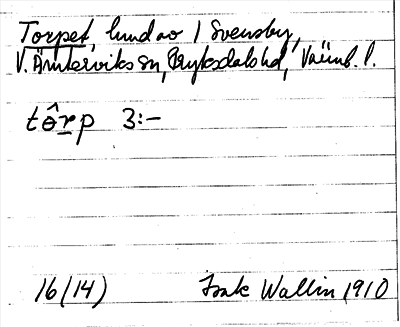 Torpet, lund av 1 Svensby,
V. Ämterviks sn, Fryksdals hd, Värml. l.
tôrp 3:–
16/14) Isak Wallin 1910